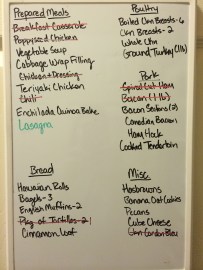 Prepared Meals
Breakfast Casserole
Poppyseed Chicken
Vegetable Soup
Cabbage Wrap Filling
Chicken & Dressing
Teriyaki Chicken
Chili
Enchilada Quinoa Bake
Lasagna
Bread
Hawaiian Rolls
Bagels-3
English Muffins-2
Pkg of Tortillas-2
Cinnamon Loaf
Poultry
Boiled Ckn Breasts-6
Ckn Breasts-2
Whole Ckn
Ground Turkey (1lb)
Pork
Spiral Cut Ham
Bacon (1 lb)
Bacon
Canadian Bacon
Ham Hock
Cooked Tenderloin
Misc
Hasbrowns
Banana Oat Cubies
Pecans
Cube Cheese
Ckn Cordon Bleu